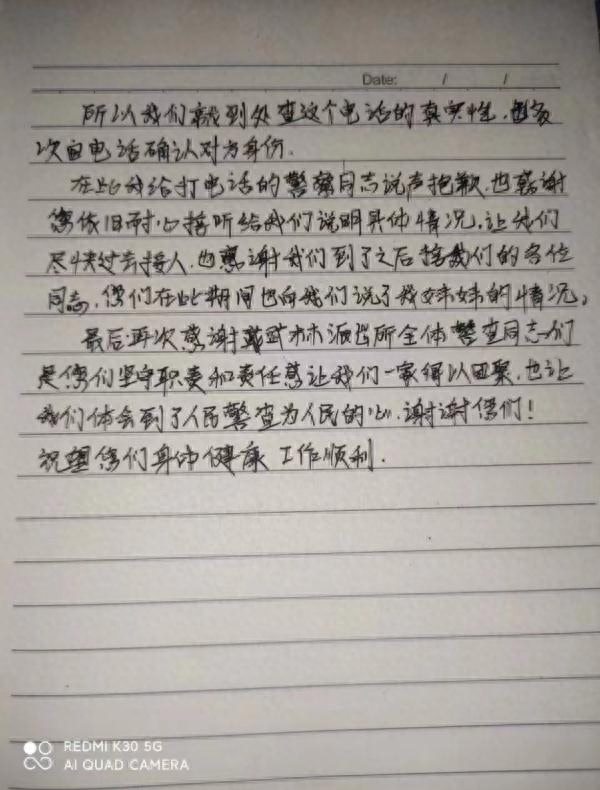 Date: / /
所以我们就到处查这个电话的真实性,也多
次回电话确认对方身份.
在此我给打电话的警察同志说声抱歉,也感谢
您依旧耐心接听给我们说明具体情况,让我们
尽快过去接人,也感谢我们到了之后接我们的各位
同志,您们在此期间也向我们说了我妹妹的情况,
最后再次感谢 林派出所全体警查同志们
是您们坚守职责和责任感让我们一家得以团聚,也让
我们体会到了人民警查为人民的心.谢谢您们!
祝望您们身体健康 工作顺利.
REDMI K30 5G
AI QUAD CAMERA